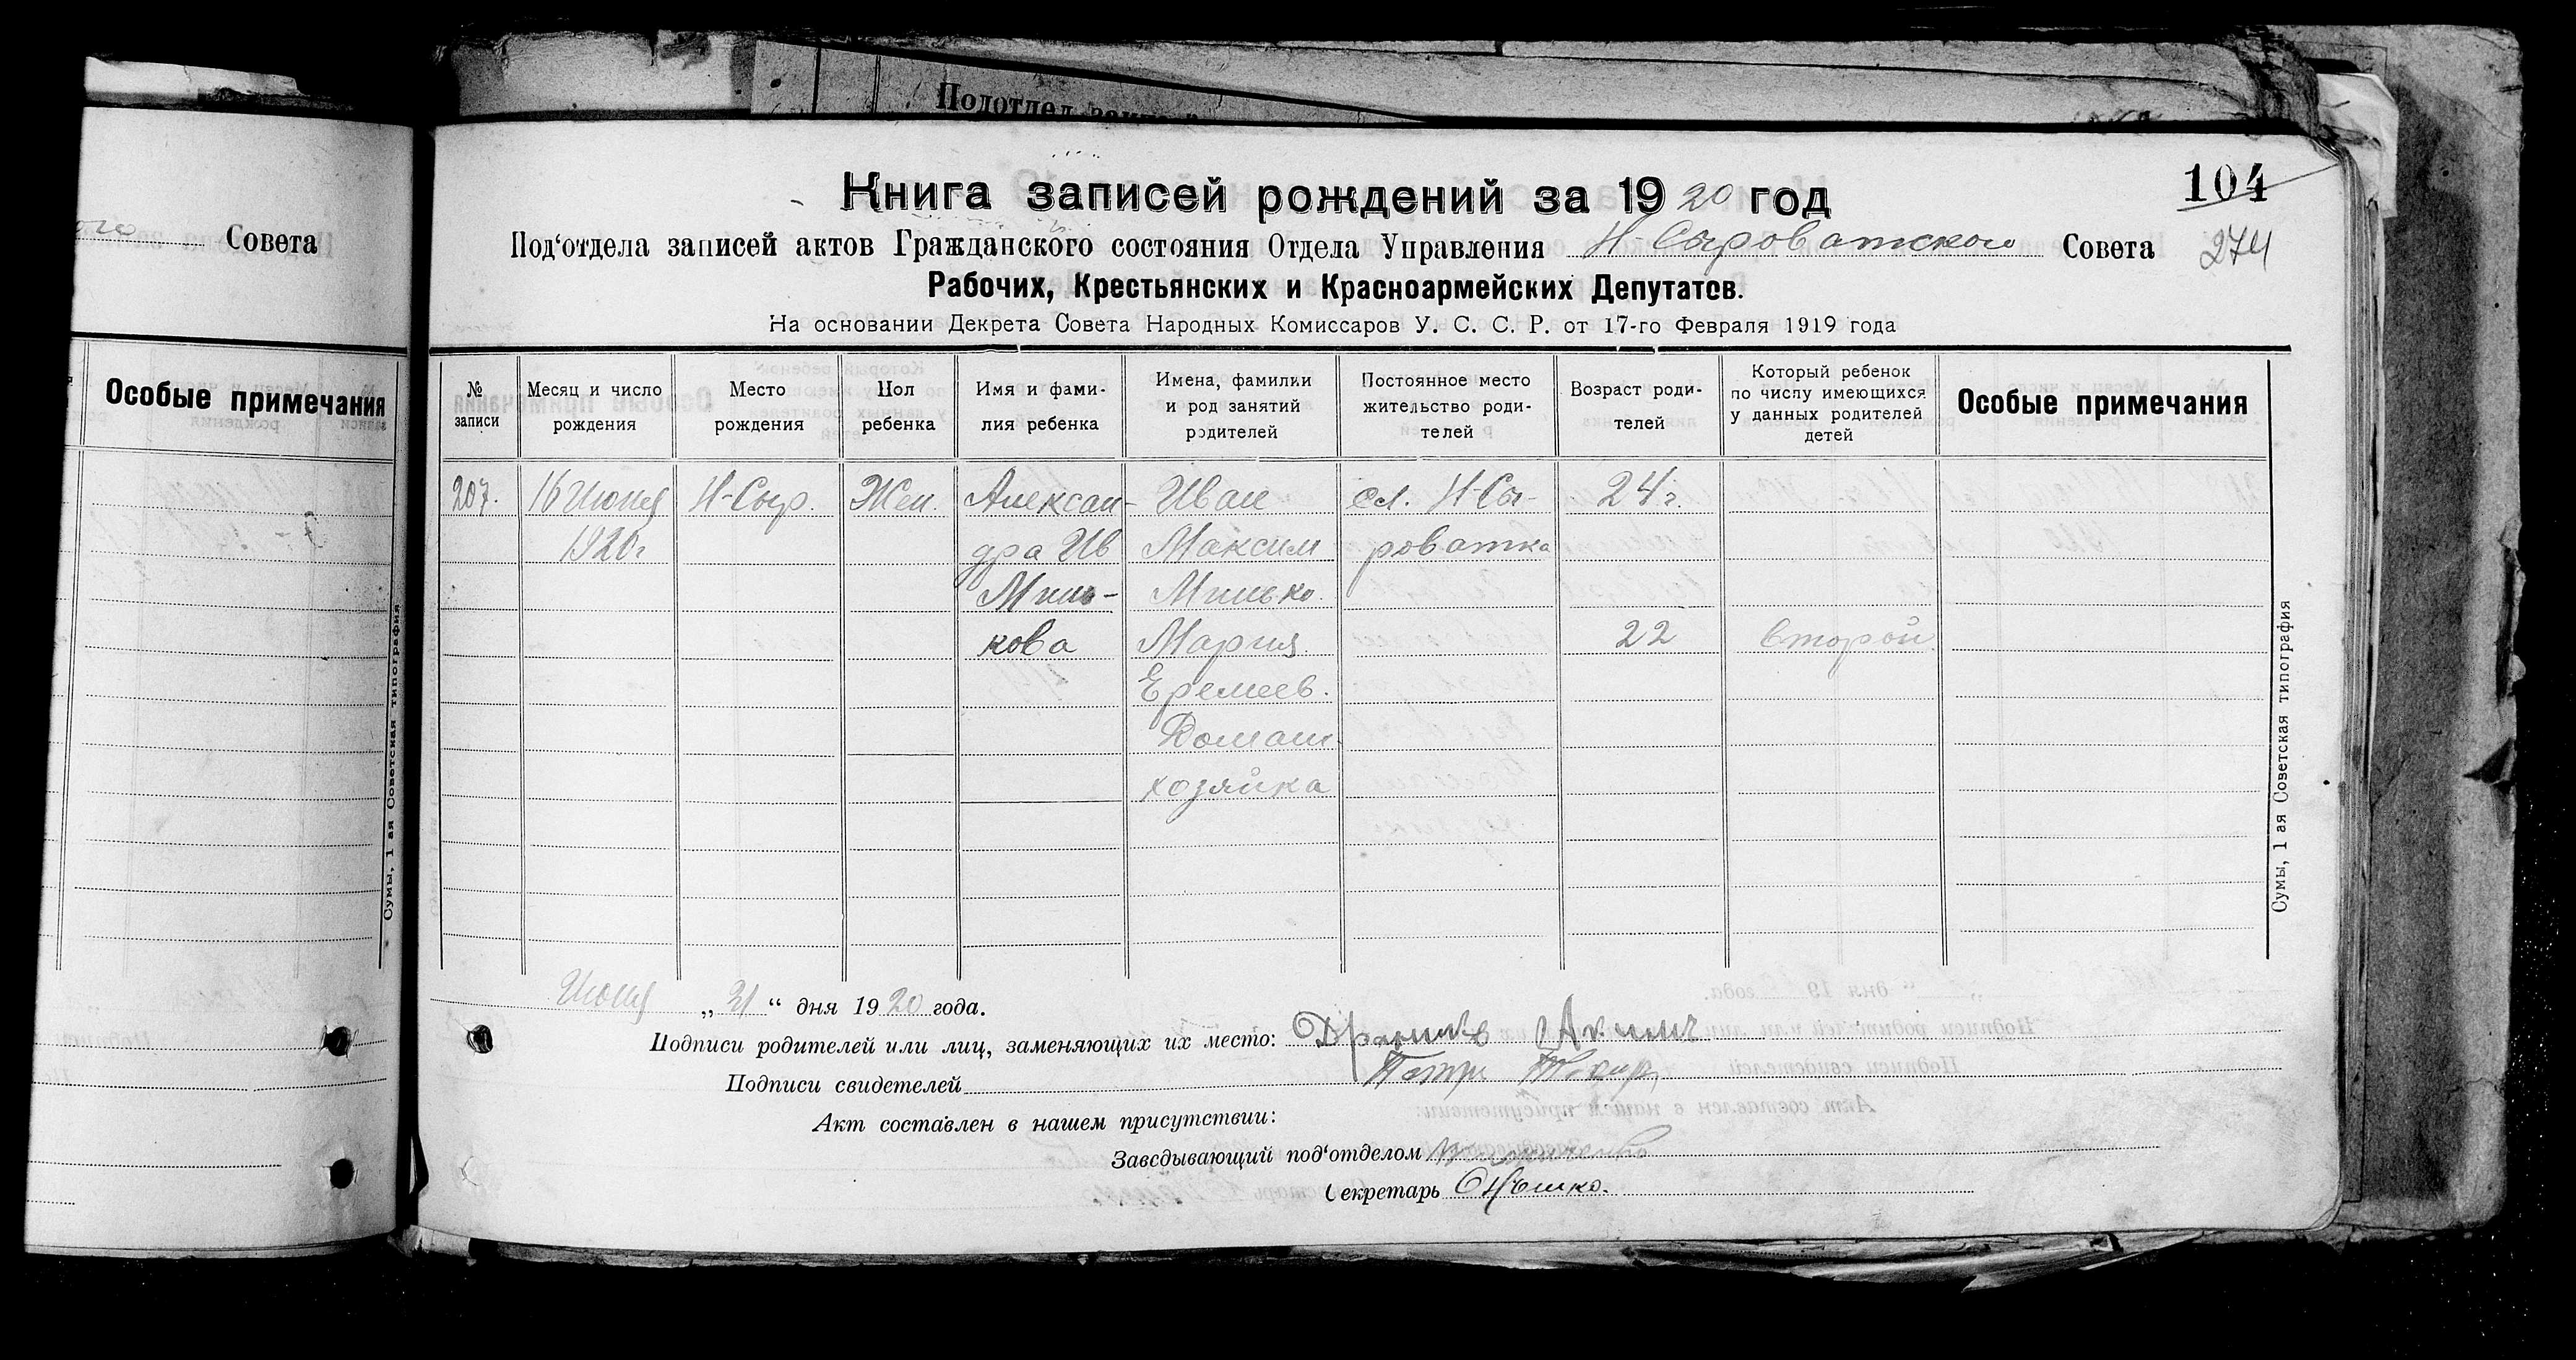 Подотдел
ого Совета
Особые примечания
Сумы, 1 ая Советская типография
104
274
Книга записей рождений за 1920 год
Под‘отдела записей актов Гражданского состояния Отдела Управления Н Сыроватского Совета
Рабочих, Крестьянских и Красноармейских Депутатов.
На основании Декрета Совета Народных Комиссаров У. С. С. Р. от 17-го Февраля 1919 года
№ записи
Месяц и число рождения
Место рождения
Пол ребенка
Имя и фами-
лия ребенка
Имена, фамилии
и род занятий
родителей
Постоянное место
жительство роди-
телей
Возраст роди-
телей
Который ребенок
по числу имеющихся
у данных родителей
детей
Особые примечания
207. 16 Июня Н-Сыр. Жен. Алексан- Иван сл. Н-Сы- 24 г.
1920 г дра Ив Максим роватка
Минь- Минько.
кова Мария 22 второй
Еремеев.
Домаш.
хозяйка
Сумы, 1 ая Советская типография
Июня „21“ дня 1920 года.
Подписи родителей или лиц, заменяющих их место:
Подписи свидетелей
Акт составлен в нашем присутствии:
Заведывающий под‘отделом
Секретарь